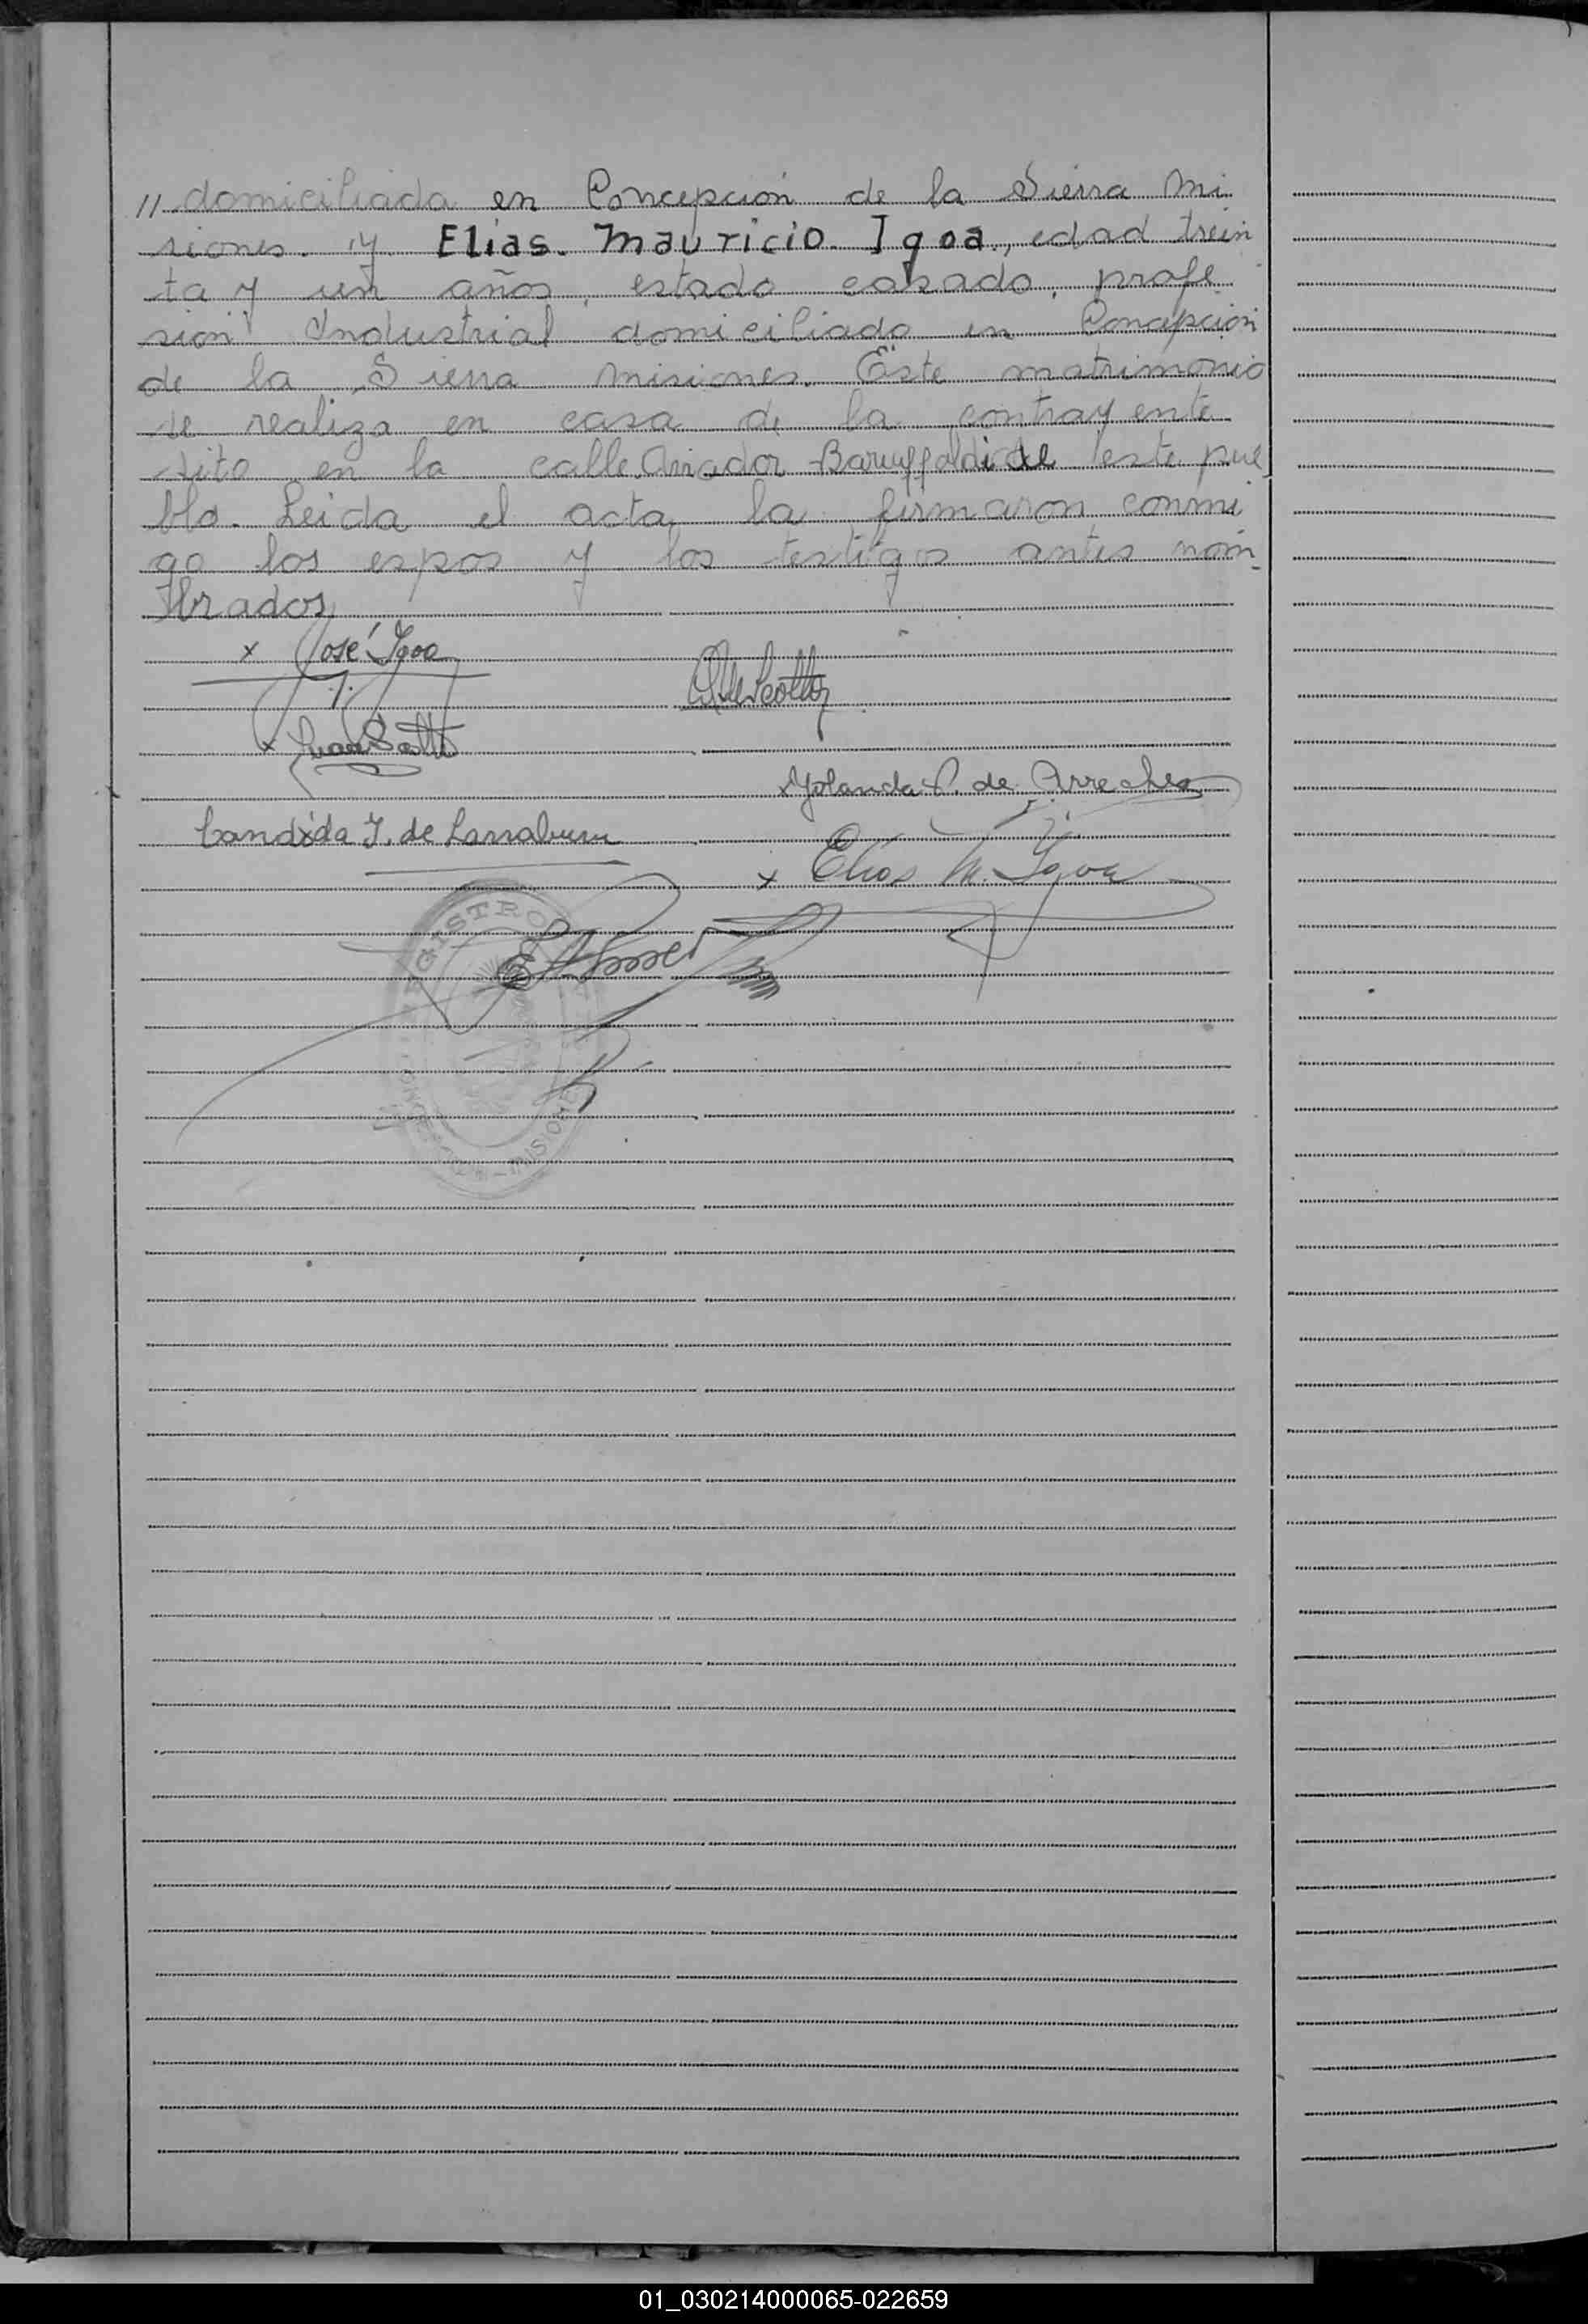 // domiciliada en Concepción de la Sierra Mi
siones. y Elias. Mauricio. Igoa, edad trein
ta y un años, estado casado, profe
sion Industrial domiciliado en Concepción
de la Sierra Misiones. Este matrimonio
se realiza en casa de la contrayente
sito en la calle Amador Baruffaldi de este pue
blo. Leida el acta la firmaron conmi
go los espos y los testigos antes nom
brados
x José Igoa
x Juan
x Yolanda S. de Arrechea
Candida I. de Larraburu
x Elias M. Igoa
REGISTRO
MISIONES
01_030214000065-022659